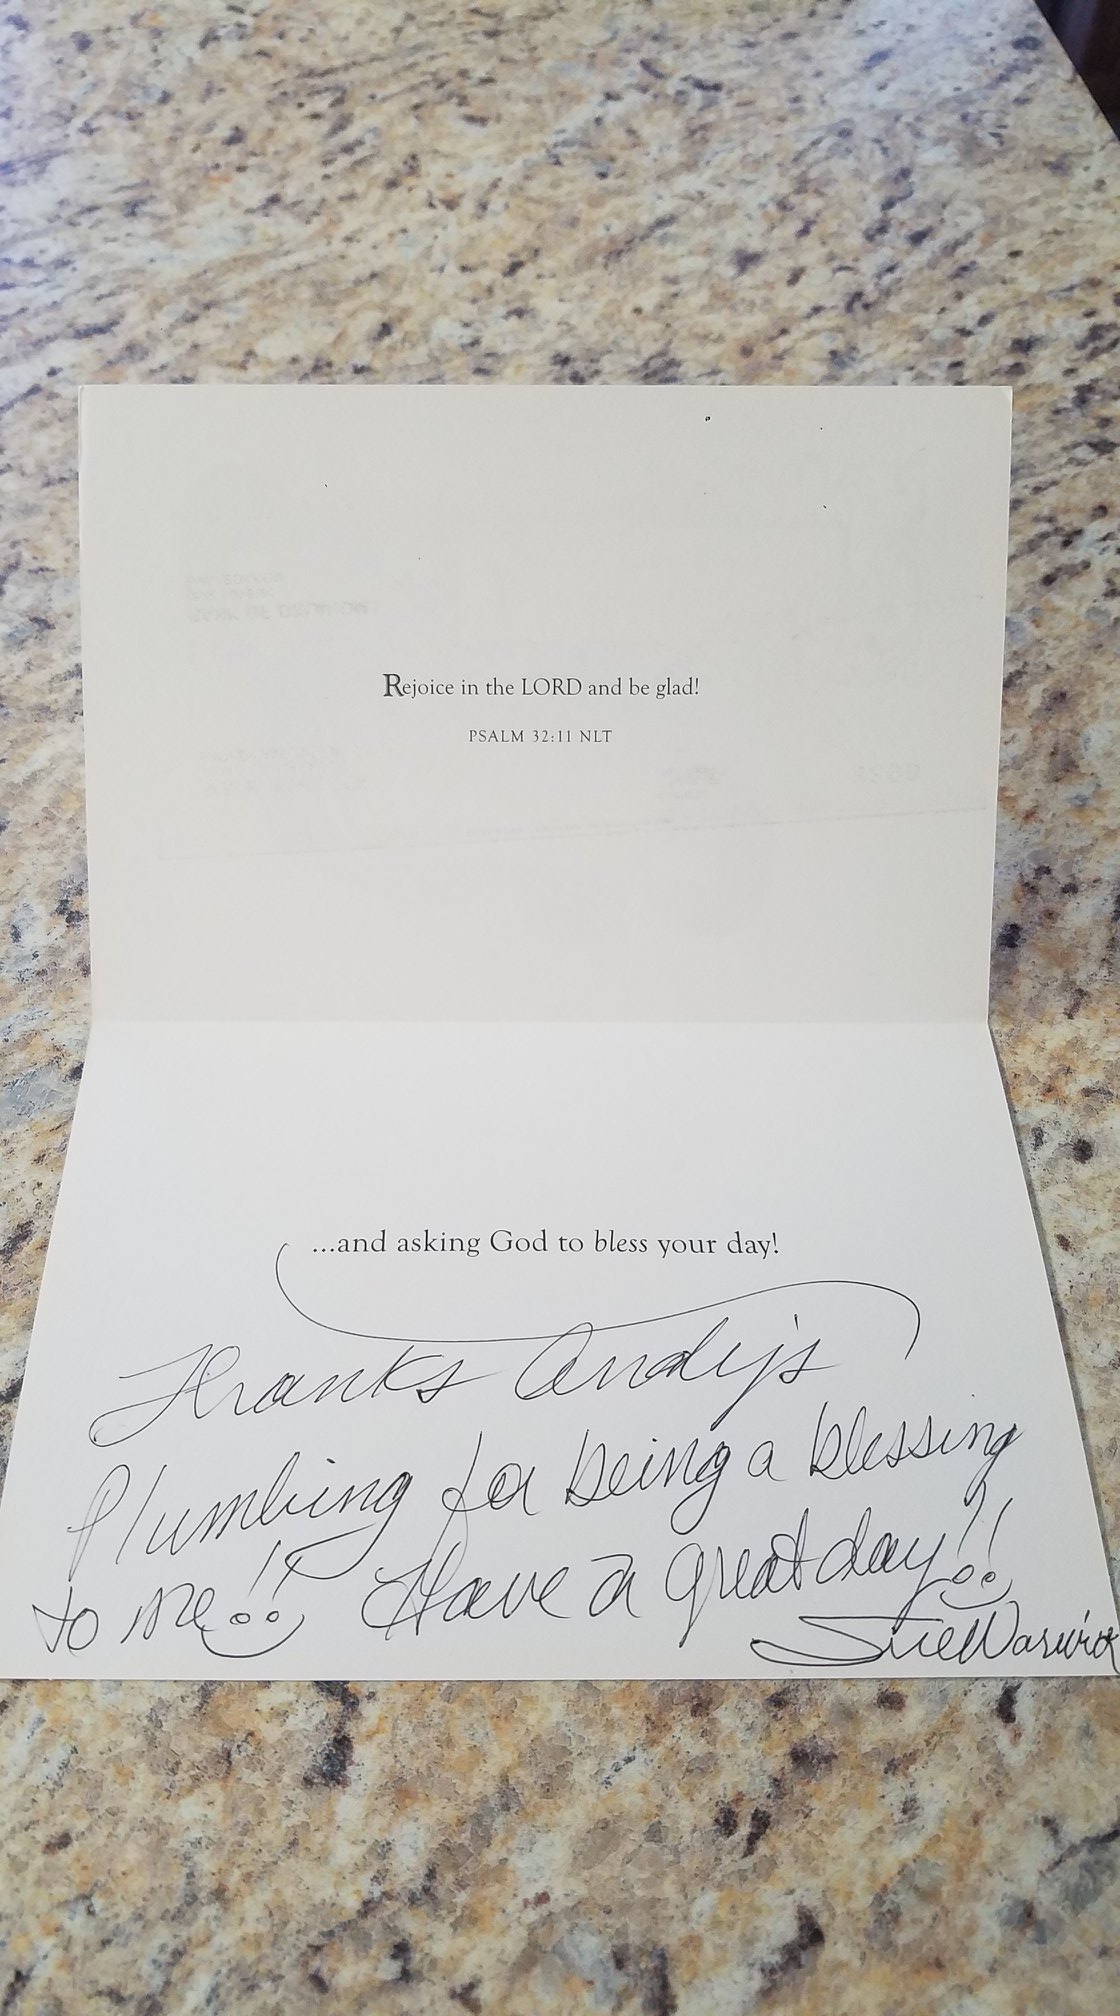 Rejoice in the LORD and be glad!
PSALM 32:11 NLT
...and asking God to bless your day!
Thanks Andy's
Plumbing for being a blessing
to me!! Have a great day!!
Sue Warwick